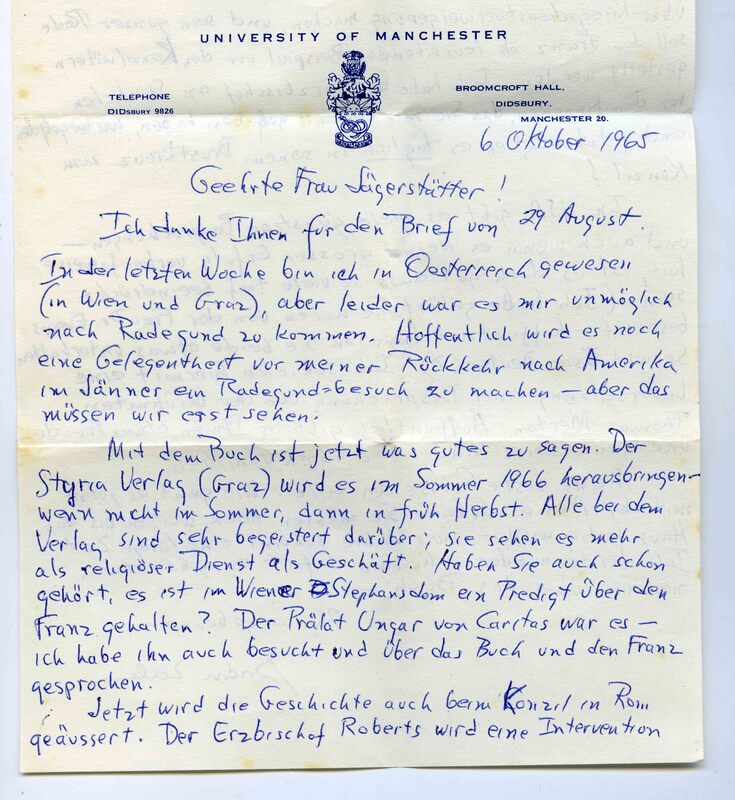 UNIVERSITY OF MANCHESTER
TELEPHONE
DIDSBURY 9826
BROOMCROFT HALL,
DIDSBURY,
MANCHESTER 20.
6 Oktober 1965
Geehrte Frau Jägerstätter!
Ich danke Ihnen für den Brief von 29 August.
In der letzten Woche bin ich in Oesterreich gewesen
(in Wien und Graz), aber leider war es mir unmöglich
nach Radegund zu kommen. Hoffentlich wird es noch
eine Gelegentheit vor meiner Rückkehr nach Amerika
im Jänner ein Radegund=besuch zu machen — aber das
müssen wir erst sehen.
Mit dem Buch ist jetzt was gutes zu sagen. Der
Styria Verlag (Graz) wird es im Sommer 1966 herausbringen—
wenn nicht im Sommer, dann in früh Herbst. Alle bei dem
Verlag sind sehr begeistert darüber; sie sehen es mehr
als religiöser Dienst als Geschäft. Haben Sie auch schon
gehört, es ist im Wiener Stephansdom ein Predigt über den
Franz gehalten? Der Prälat Ungar von Caritas war es —
ich habe ihn auch besucht und über das Buch und den Franz
gesprochen.
Jetzt wird die Geschichte auch beim Konzil in Rom
geäussert. Der Erzbischof Roberts wird eine Intervention